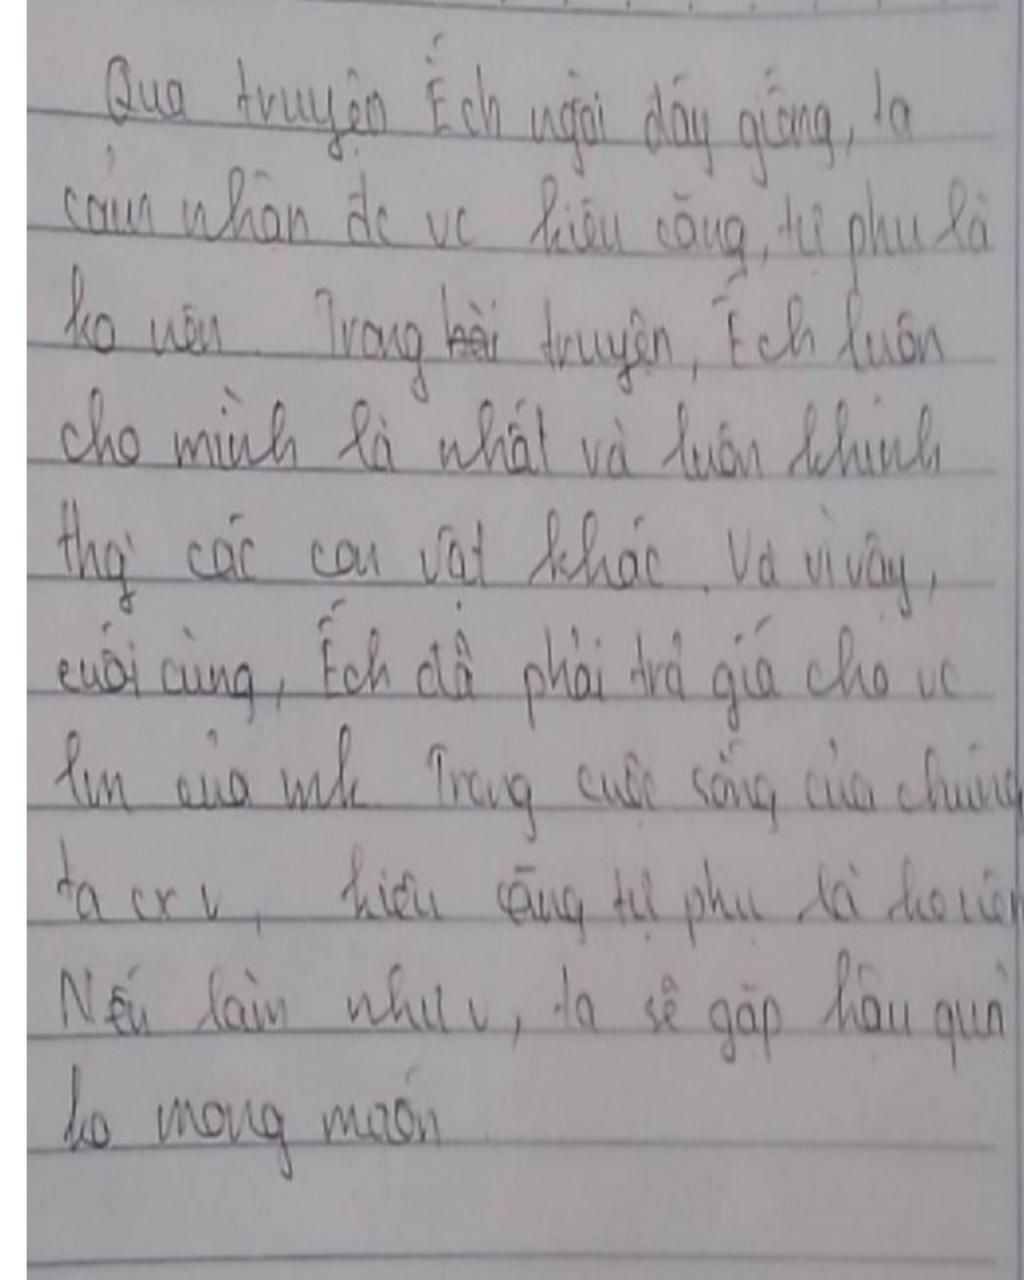 Qua truyện Ếch ngồi đáy giếng, ta
cảm nhận đc vc kiêu căng, tự phụ là
ko nên. Trong bài truyện, Ếch luôn
cho mình là nhất và luôn khinh
thg các con vật khác. Và vì vậy,
cuối cùng, Ếch đã phải trả giá cho vc
lm của mk Trong cuộc sống của chúng
ta cx v, kiêu căng tự phụ là ko nên
Nếu làm như v, ta sẽ gặp hậu quả
ko mong muốn